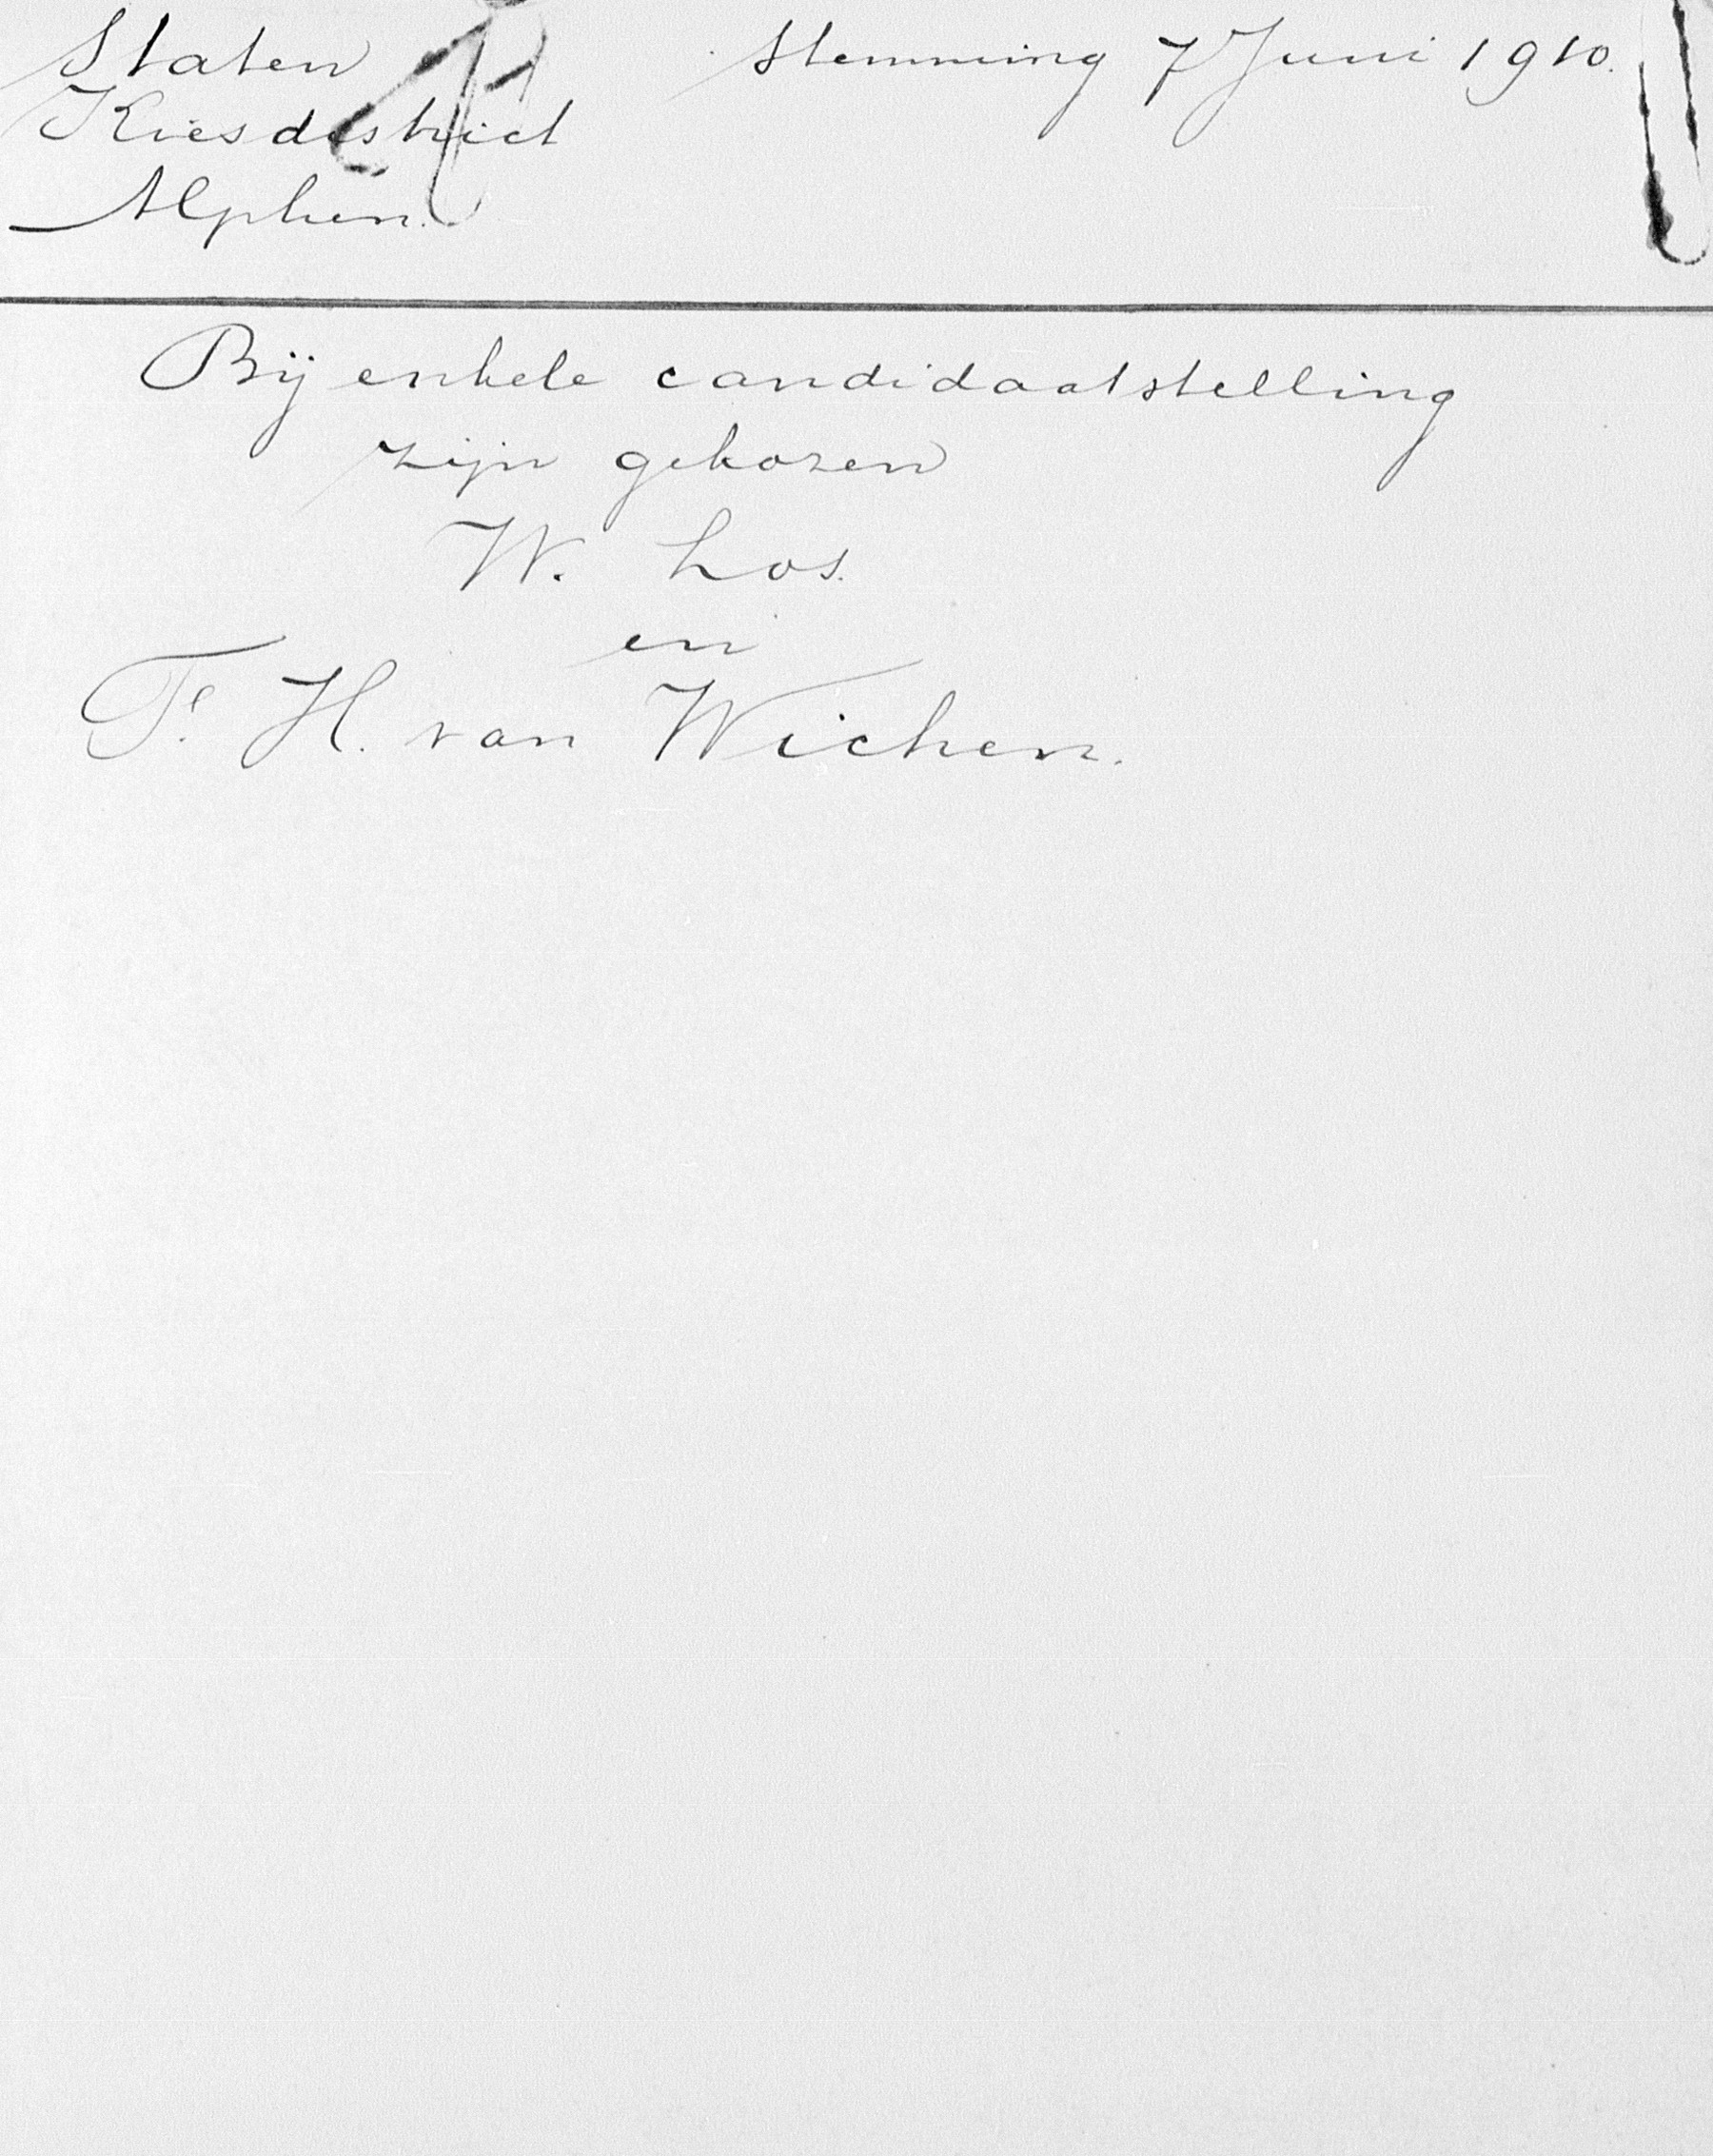 Staten Stemming 7 Juni 1910.
Kiesdistrict
Alphen.
Bij enkele candidaatstelling
zijn gekozen
W. Los.
en
F. H. van Wichen.